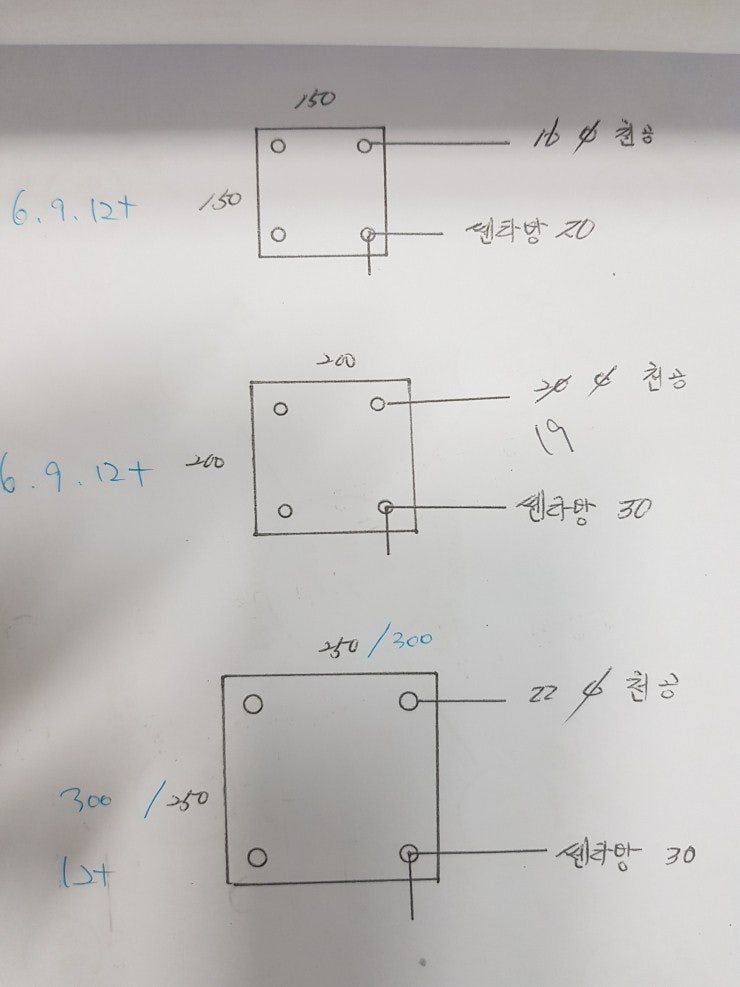 150
16 φ 천공
150
6.9.12t
쎈타방 20
200
20 φ 천공
19
200
6.9.12t
쎈타방 30
250/300
22 φ 천공
300/250
12t
쎈타방 30